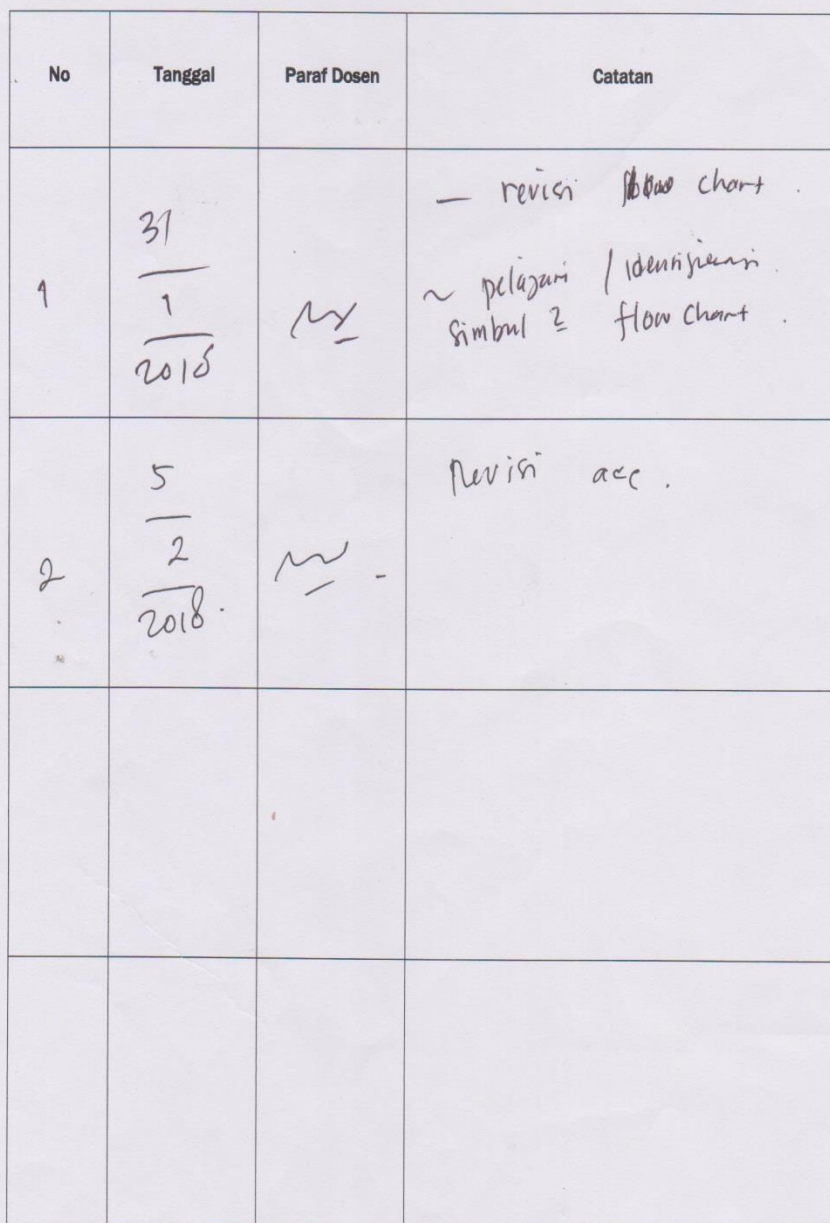 No Tanggal Paraf Dosen Catatan
1
31
1
2018
- revisi flow chart .
~ pelajari / identifikasi
simbul 2 flow chart .
2
5
2
2018.
Revisi acc .